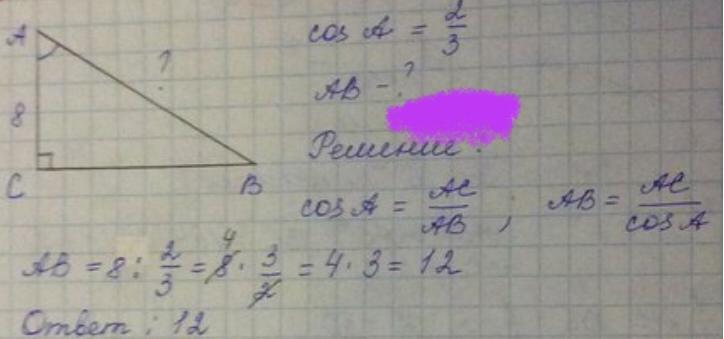 A
8
C
B
?
cos A = 2/3
AB - ?
Решение:
cos A = AC/AB ; AB = AC/cos A
AB = 8 : 2/3 = 8 4 · 3/2 = 4 · 3 = 12
Ответ: 12